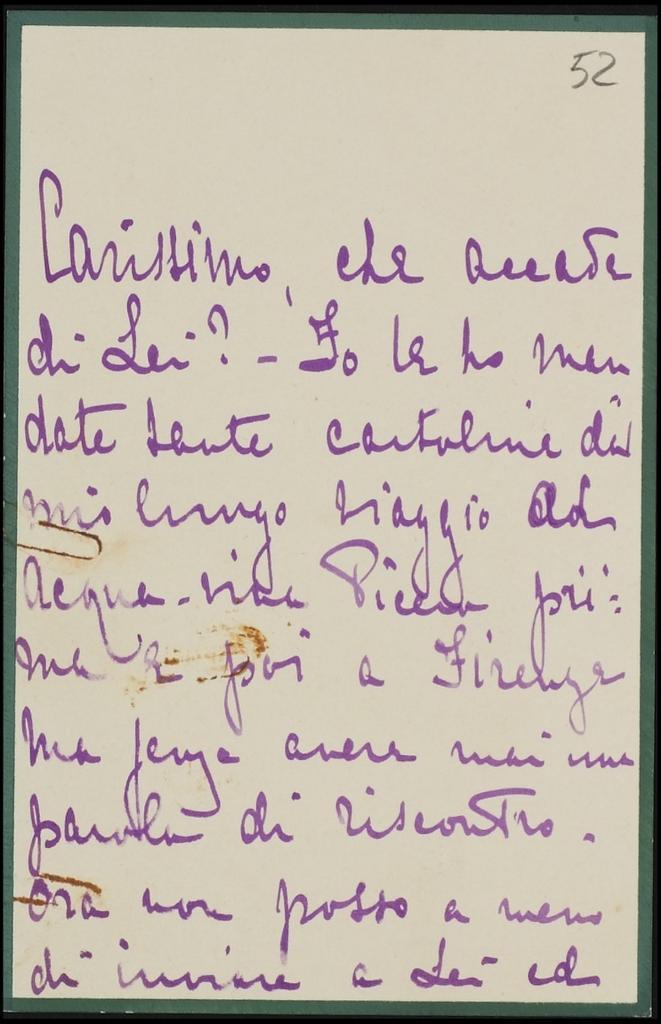 52
Carissimo, che accade
di Lei? - Io le ho man
date tante cartoline del
mio lungo viaggio ad
Acqua-viva Picena pri:
ma e poi a Firenze
ma senza avere mai una
parola di riscontro.
Ora non posso a meno
di inviare a Lei ed